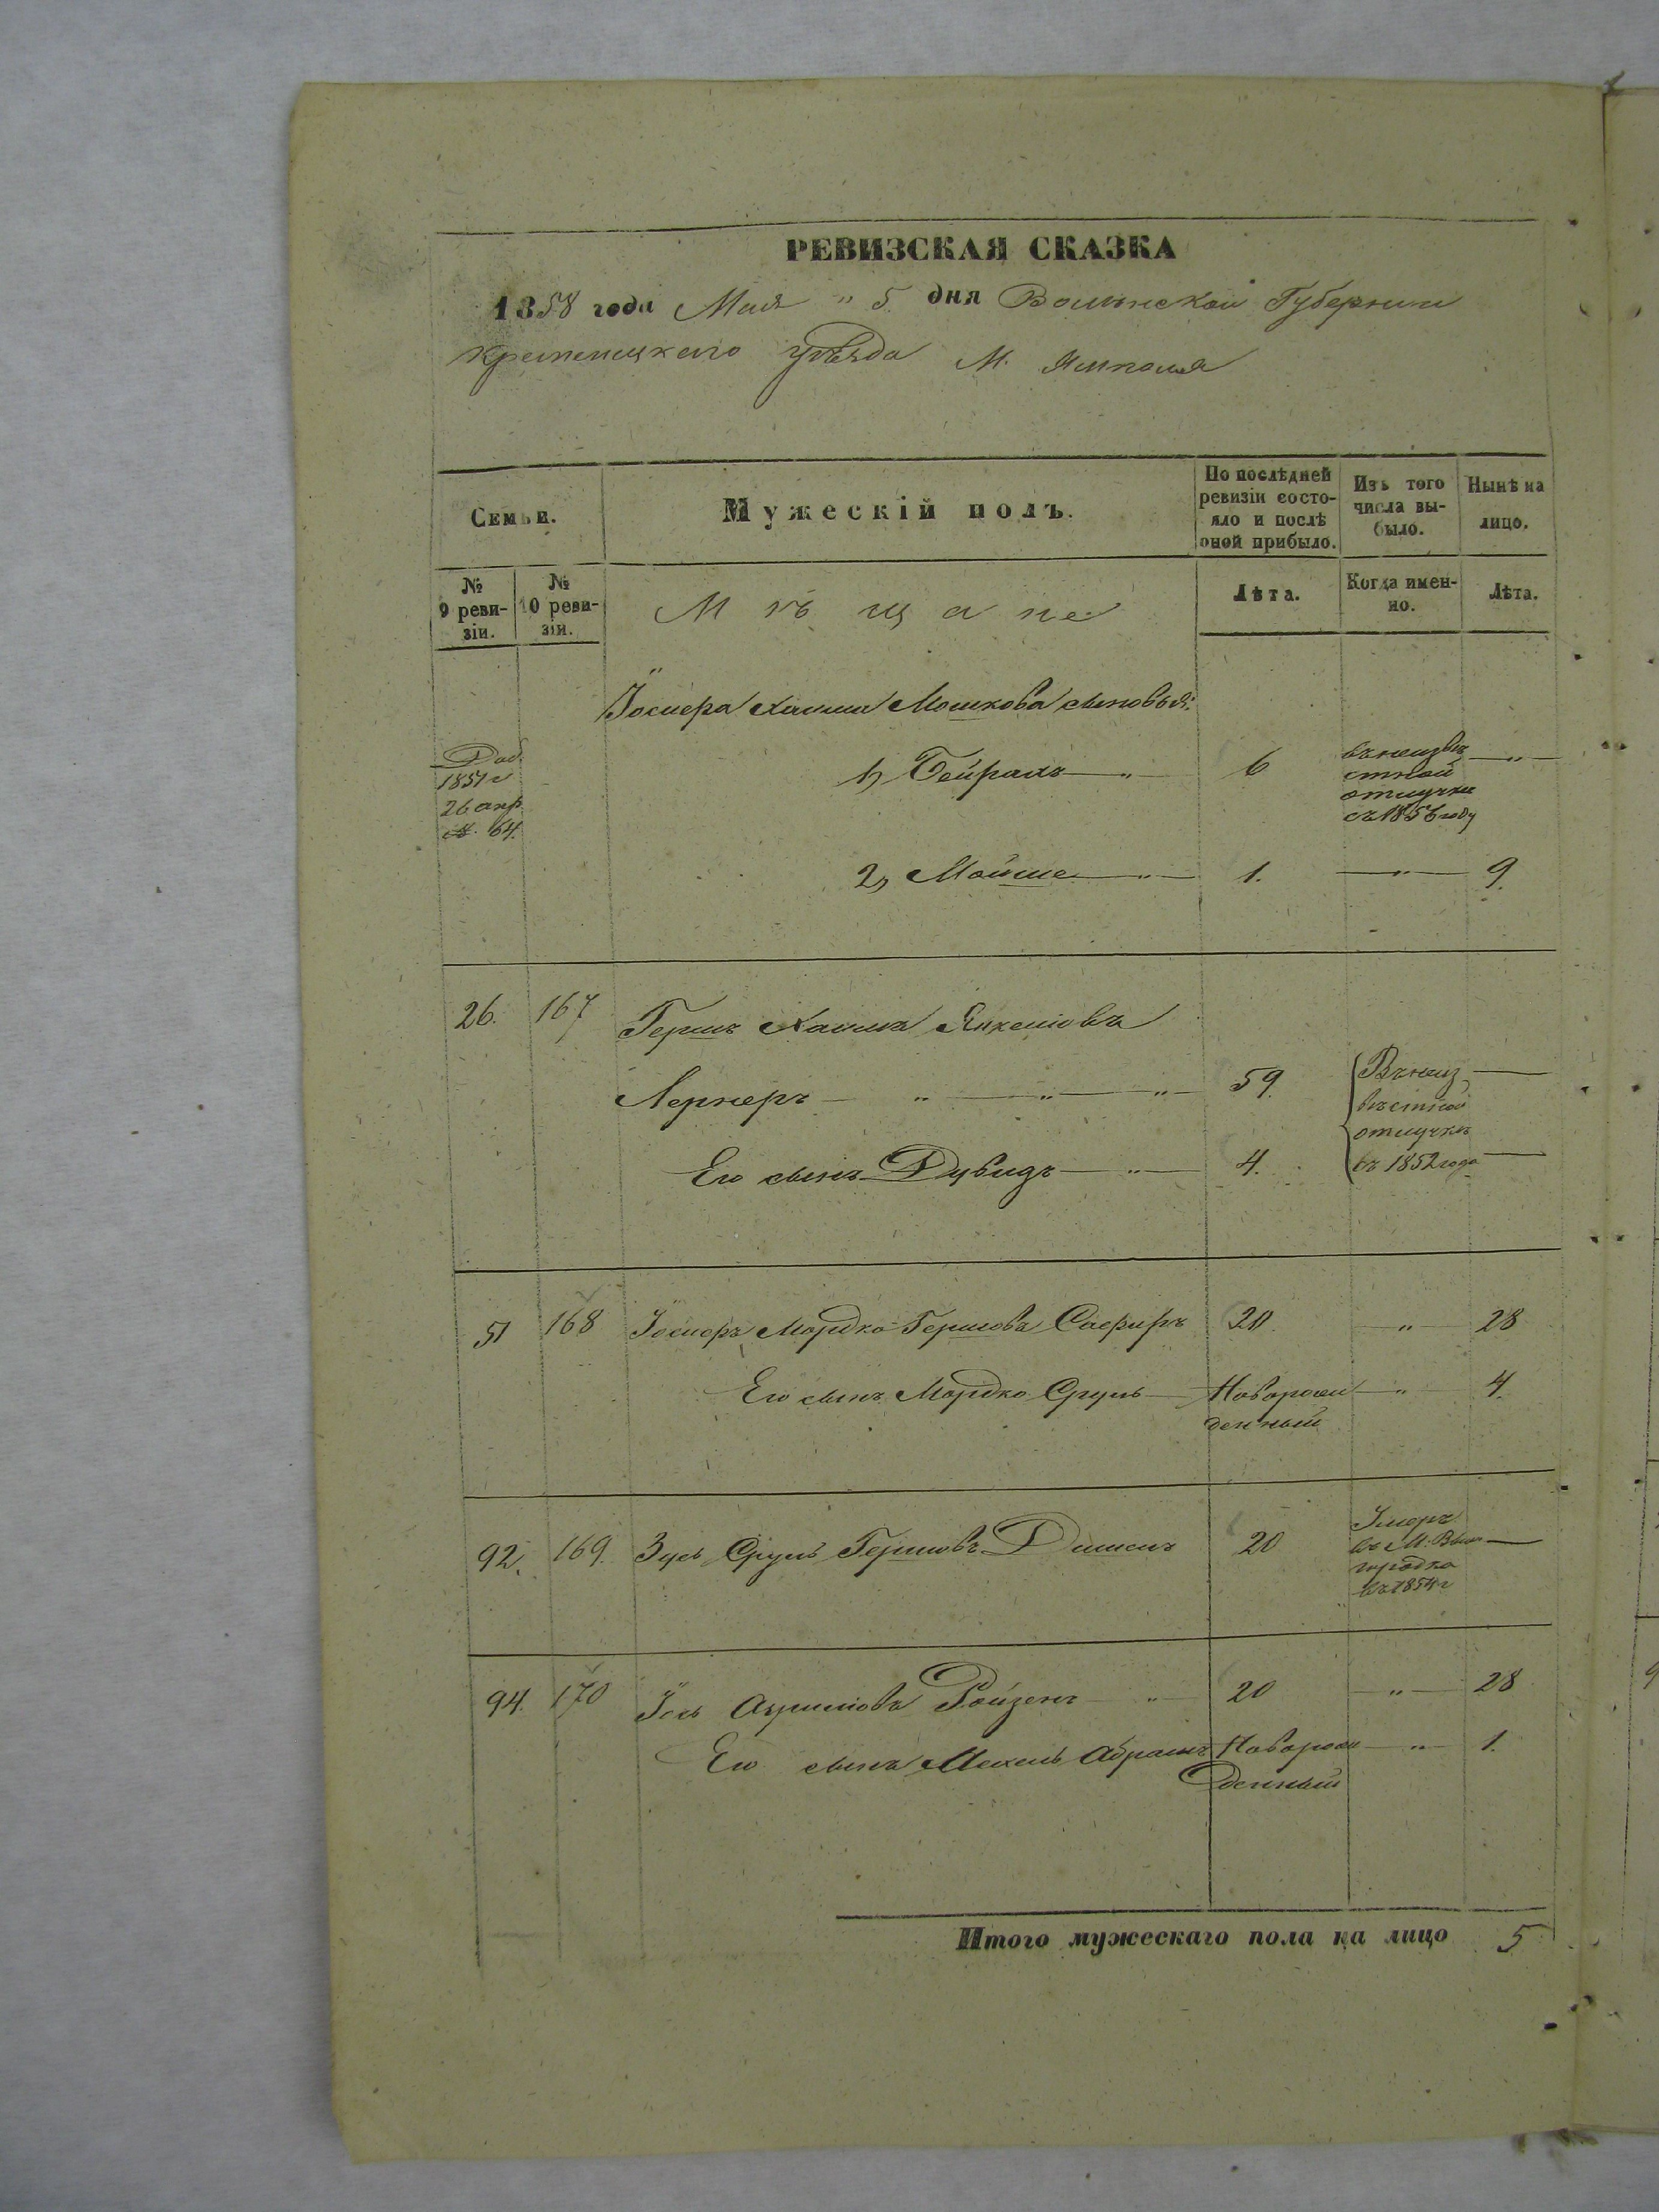 РЕВИЗСКАЯ СКАЗКА
1858 года Мая " 5 дня Волынской Губернии
Кременецкаго уѣзда М. Ямполя
Семьи.
Мужескій полъ.
По послѣдней ревизіи состо-
яло и послѣ оной прибыло.
Изъ того числа вы-
было.
Нынѣ на лицо.
№ 9 реви-
зіи.
№ 10 реви-
зіи.
Мѣщане
Лѣта.
Когда имен-
но.
Лѣта.
Іосиера Хаима Мошкова сыновья:
Доп.
1851 г
26 апр.
№ 64.
1, Бейрахъ — " — 6 въ неизвѣ — " —
стной
отлучки
съ 1856 году
2, Мойше — " — 1. — " — 9.
26. 167 Гершъ Хаимъ Янкелiовъ
Лернеръ — " — " — " — 59. Въ неиз —
вѣстной
отлучкѣ
Его сынъ Дувидъ — " — 4. въ 1852 года —
51 168 Іосиеръ Мордко Гершовъ Сафиръ 20 — " — 28
Его сынъ Мордко Сруль — Новорож — " — 4.
денный
92. 169. Зусь Сруль Гершовъ 20 Умеръ
въ М. —
городка
въ 1854 г
94. 170 Іось Ройзенъ — " — 20 — " — 28
Его сынъ Абрамъ Новорож — " — 1.
денный
Итого мужескаго пола на лицо 5